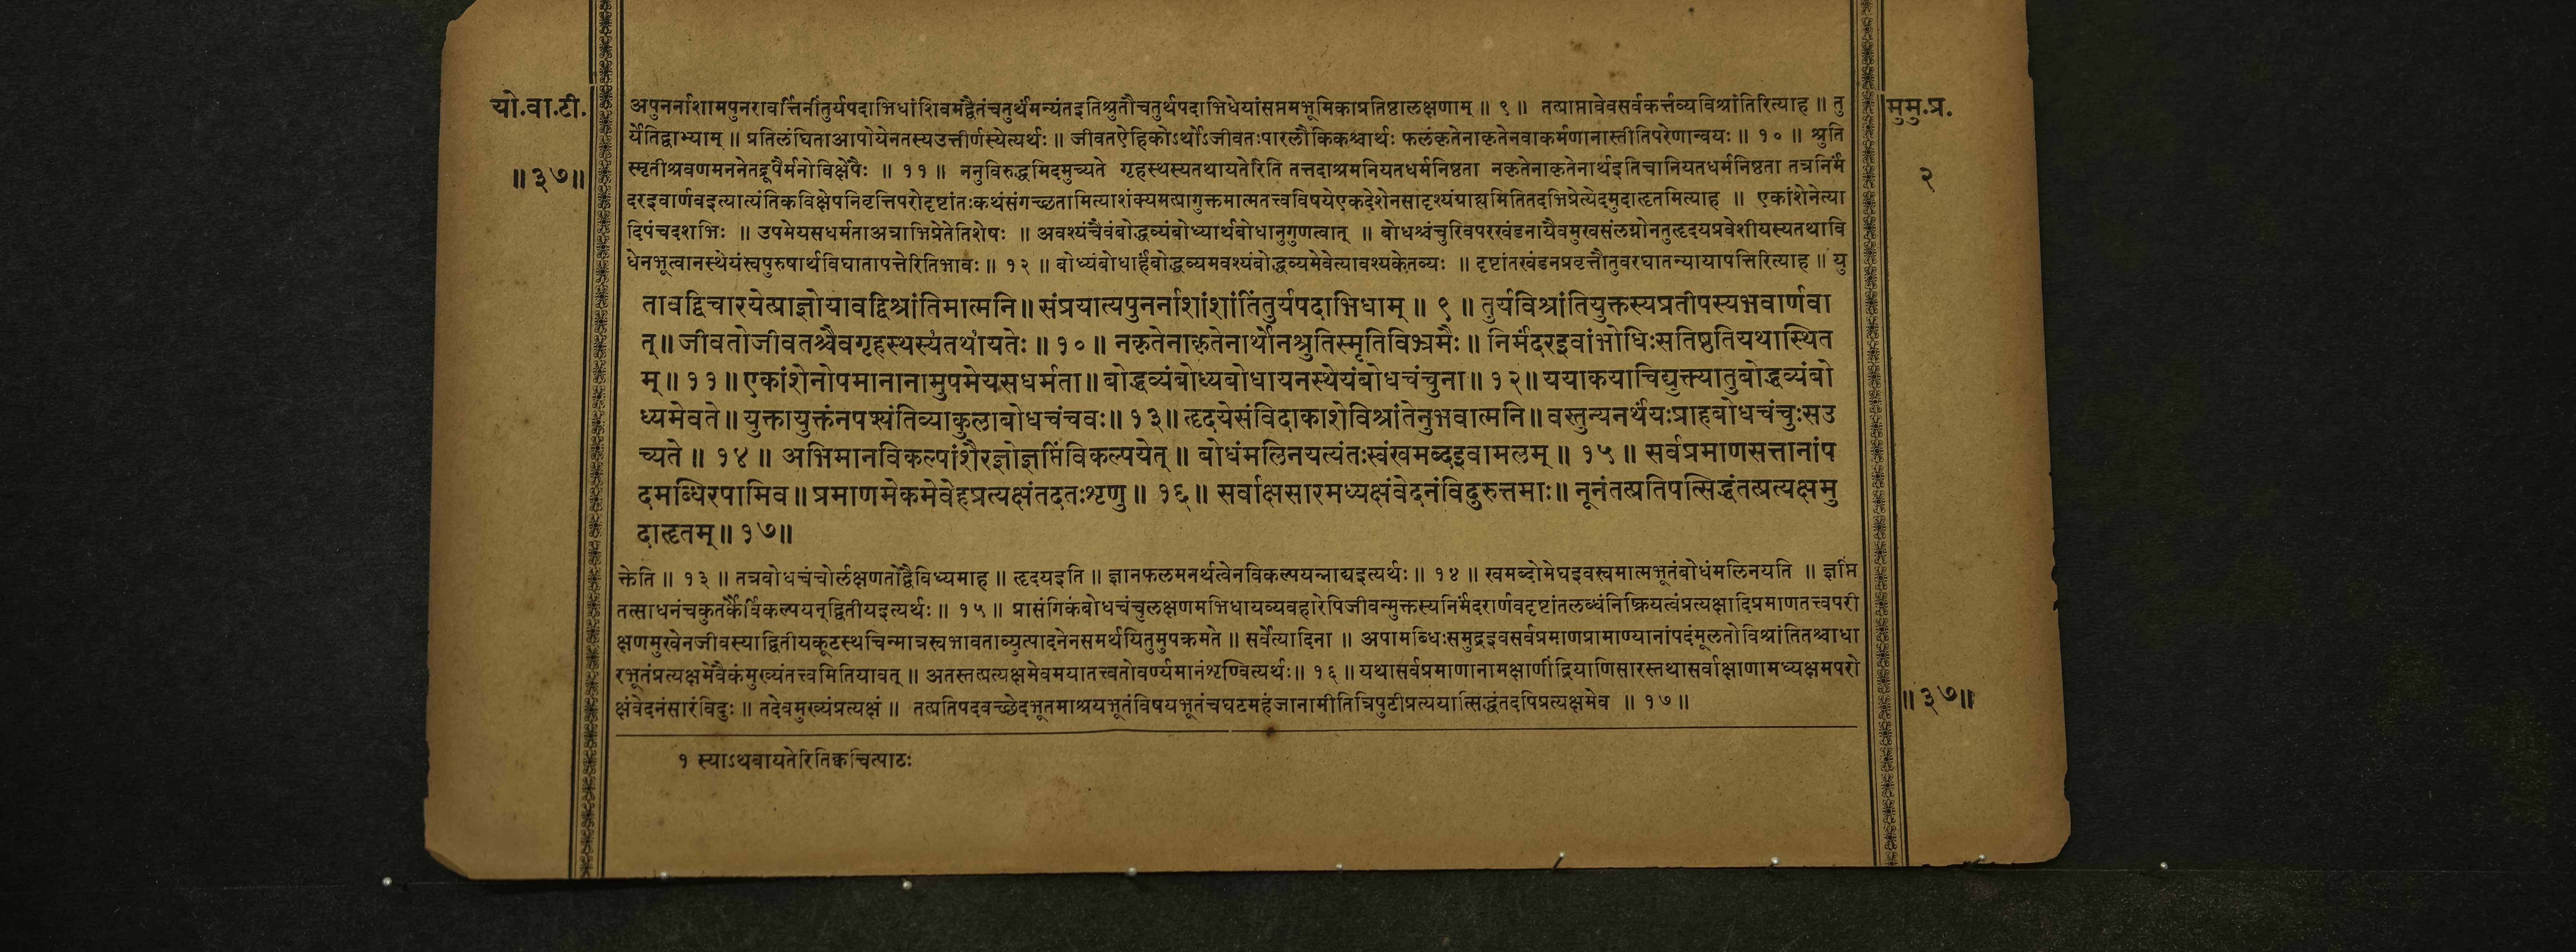 यो.वा.टी.
॥३७॥
अपुनर्नाशामपुनरावर्त्तिनींतुर्यपदाभिधांशिवमद्वैतंचतुर्थंमन्यंतइतिश्रुतौचतुर्थपदाभिधेयांसप्तमभूमिकाप्रतिष्ठालक्षणाम् ॥ ९ ॥ तत्प्राप्तावेवसर्वकर्त्तव्यविश्रांतिरित्याह ॥ तु
र्येतिद्वाभ्याम् ॥ प्रतिलंघिताआपोयेनतस्यउत्तीर्णस्येत्यर्थः ॥ जीवतऐहिकोऽर्थोऽजीवतःपारलौकिकश्चार्थः फलंकृतेनाकृतेनवाकर्मणानास्तीतिपरेणान्वयः ॥ १० ॥ श्रुति
स्मृतीश्रवणमननेतद्रूपैर्मनोविक्षेपैः ॥ ११ ॥ ननुविरुद्धमिदमुच्यते गृहस्थस्यतथायतेरिति तत्तदाश्रमनियतधर्मनिष्ठता नकृतेनाकृतेनार्थइतिचानियतधर्मनिष्ठता तत्रनिर्मं
दरइवार्णवइत्यात्यंतिकविक्षेपनिवृत्तिपरोदृष्टांतःकथंसंगच्छतामित्याशंक्यमत्प्रागुक्तमात्मतत्त्वविषयेएकदेशेनसादृश्यंग्राह्यमितितदभिप्रेत्येदमुदाहृतमित्याह ॥ एकांशेनेत्या
दिपंचदशभिः ॥ उपमेयसधर्मताअत्राभिप्रेतेतिशेषः ॥ अवश्यंचैवंबोद्धव्यंबोध्यार्थबोधानुगुणत्वात् ॥ बोधश्चंचुरिवपरखंडनायैवमुखसंलग्नोनतुहृदयप्रवेशीयस्यतथावि
धेनभूत्वानस्थेयंस्वपुरुषार्थविघातापत्तेरितिभावः ॥ १२ ॥ बोध्यंबोधार्हंबोद्धव्यमवश्यंबोद्धव्यमेवेत्यावश्यकेतव्यः ॥ दृष्टांतखंडनप्रवृत्तौतुवरघातन्यायापत्तिरित्याह ॥ यु
तावद्विचारयेत्प्राज्ञोयावद्विश्रांतिमात्मनि॥ संप्रयात्यपुनर्नाशांशांतिंतुर्यपदाभिधाम् ॥ ९ ॥ तुर्यविश्रांतियुक्तस्यप्रतीपस्यभवार्णवा
त्॥ जीवतोजीवतश्चैवगृहस्थस्यतथायतेः ॥ १० ॥ नकृतेनाकृतेनार्थोनश्रुतिस्मृतिविभ्रमैः ॥ निर्मंदरइवांभोधिःसतिष्ठतियथास्थित
म्॥ ११ ॥ एकांशेनोपमानानामुपमेयसधर्मता॥ बोद्धव्यंबोध्यबोधायनस्थेयंबोधचंचुना॥ १२॥ ययाकयाचिद्युक्त्यातुबोद्धव्यंबो
ध्यमेवते॥ युक्तायुक्तंनपश्यंतिव्याकुलाबोधचंचवः॥ १३॥ हृदयेसंविदाकाशेविश्रांतेनुभवात्मनि॥ वस्तुन्यनर्थंयःप्राहबोधचंचुःसउ
च्यते ॥ १४ ॥ अभिमानविकल्पांशैरज्ञोज्ञप्तिंविकल्पयेत् ॥ बोधंमलिनयत्यंतःस्वंखमब्दइवामलम् ॥ १५ ॥ सर्वप्रमाणसत्तानांप
दमब्धिरपामिव॥ प्रमाणमेकमेवेहप्रत्यक्षंतदतःशृणु॥ १६॥ सर्वाक्षसारमध्यक्षंवेदनंविदुरुत्तमाः॥ नूनंतत्प्रतिपत्सिद्धंतत्प्रत्यक्षमु
दाहृतम्॥ १७॥
क्तेति ॥ १३ ॥ तत्रबोधचंचोर्लक्षणतोद्वैविध्यमाह ॥ हृदयइति ॥ ज्ञानफलमनर्थत्वेनविकल्पयन्नाद्यइत्यर्थः ॥ १४ ॥ खमब्दोमेघइवस्वमात्मभूतंबोधंमलिनयति ॥ ज्ञप्तिं
तत्साधनंचकुतर्कैर्विकल्पयन्द्वितीयइत्यर्थः ॥ १५ ॥ प्रासंगिकंबोधचंचुलक्षणमभिधायव्यवहारेपिजीवन्मुक्तस्यनिर्मंदरार्णवदृष्टांतलब्धंनिष्क्रियत्वंप्रत्यक्षादिप्रमाणतत्त्वपरी
क्षणमुखेनजीवस्याद्वितीयकूटस्थचिन्मात्रस्वभावताव्युत्पादनेनसमर्थयितुमुपक्रमते ॥ सर्वेत्यादिना ॥ अपामब्धिःसमुद्रइवसर्वप्रमाणप्रामाण्यानांपदंमूलतोविश्रांतितश्चाधा
रभूतंप्रत्यक्षमेवैकंमुख्यंतत्त्वमितियावत् ॥ अतस्तत्प्रत्यक्षमेवमयातत्त्वतोवर्ण्यमानंशृण्वित्यर्थः॥ १६ ॥ यथासर्वप्रमाणानामक्षाणींद्रियाणिसारस्तथासर्वाक्षाणामध्यक्षमपरो
क्षंवेदनंसारंविदुः ॥ तदेवमुख्यंप्रत्यक्षं ॥ तत्प्रतिपदवच्छेदभूतमाश्रयभूतंविषयभूतंचघटमहंजानामीतित्रिपुटीप्रत्ययात्सिद्धंतदपिप्रत्यक्षमेव ॥ १७ ॥
१ स्याऽथवायतेरितिक्वचित्पाठः
मुमु.प्र.
२
॥३७॥